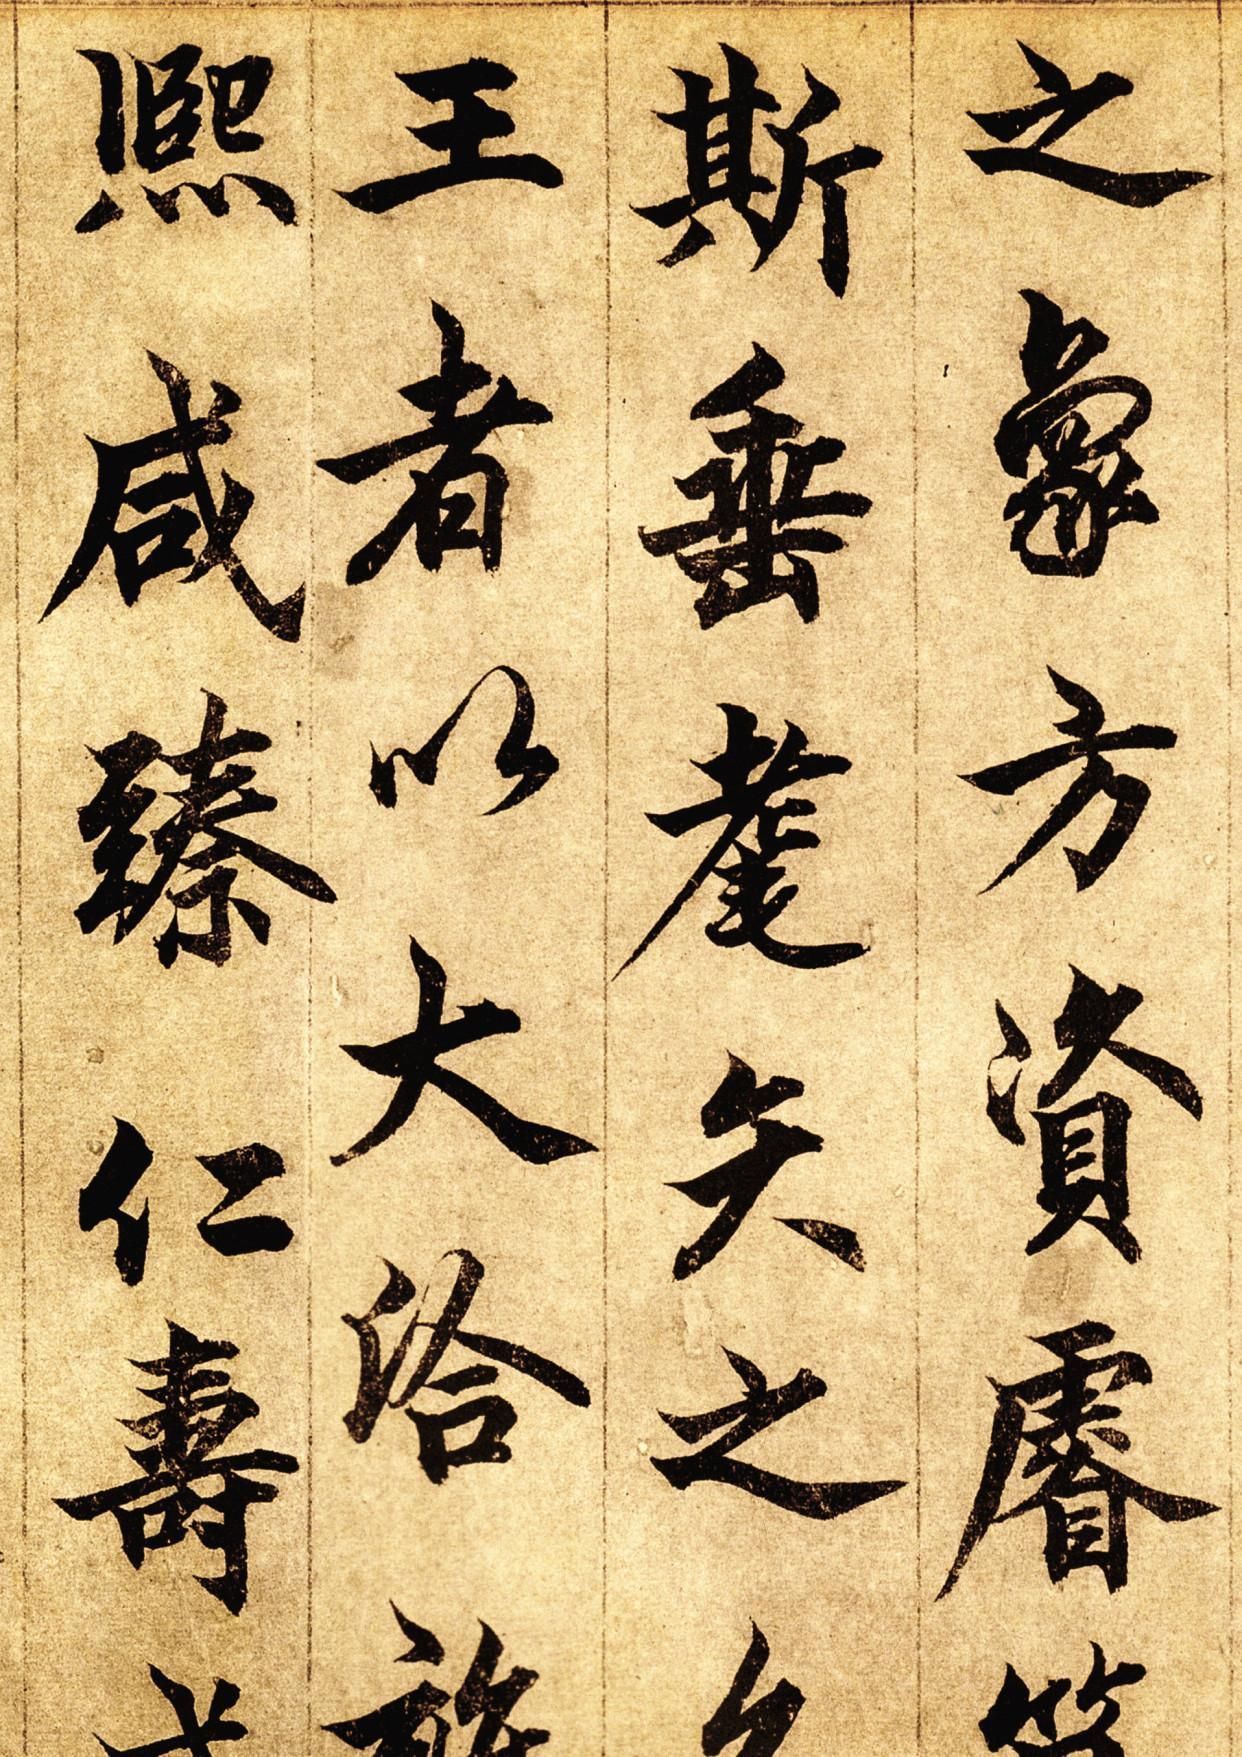 之象方資睿
斯垂耄矢之
王者以大洽
熙咸臻仁壽